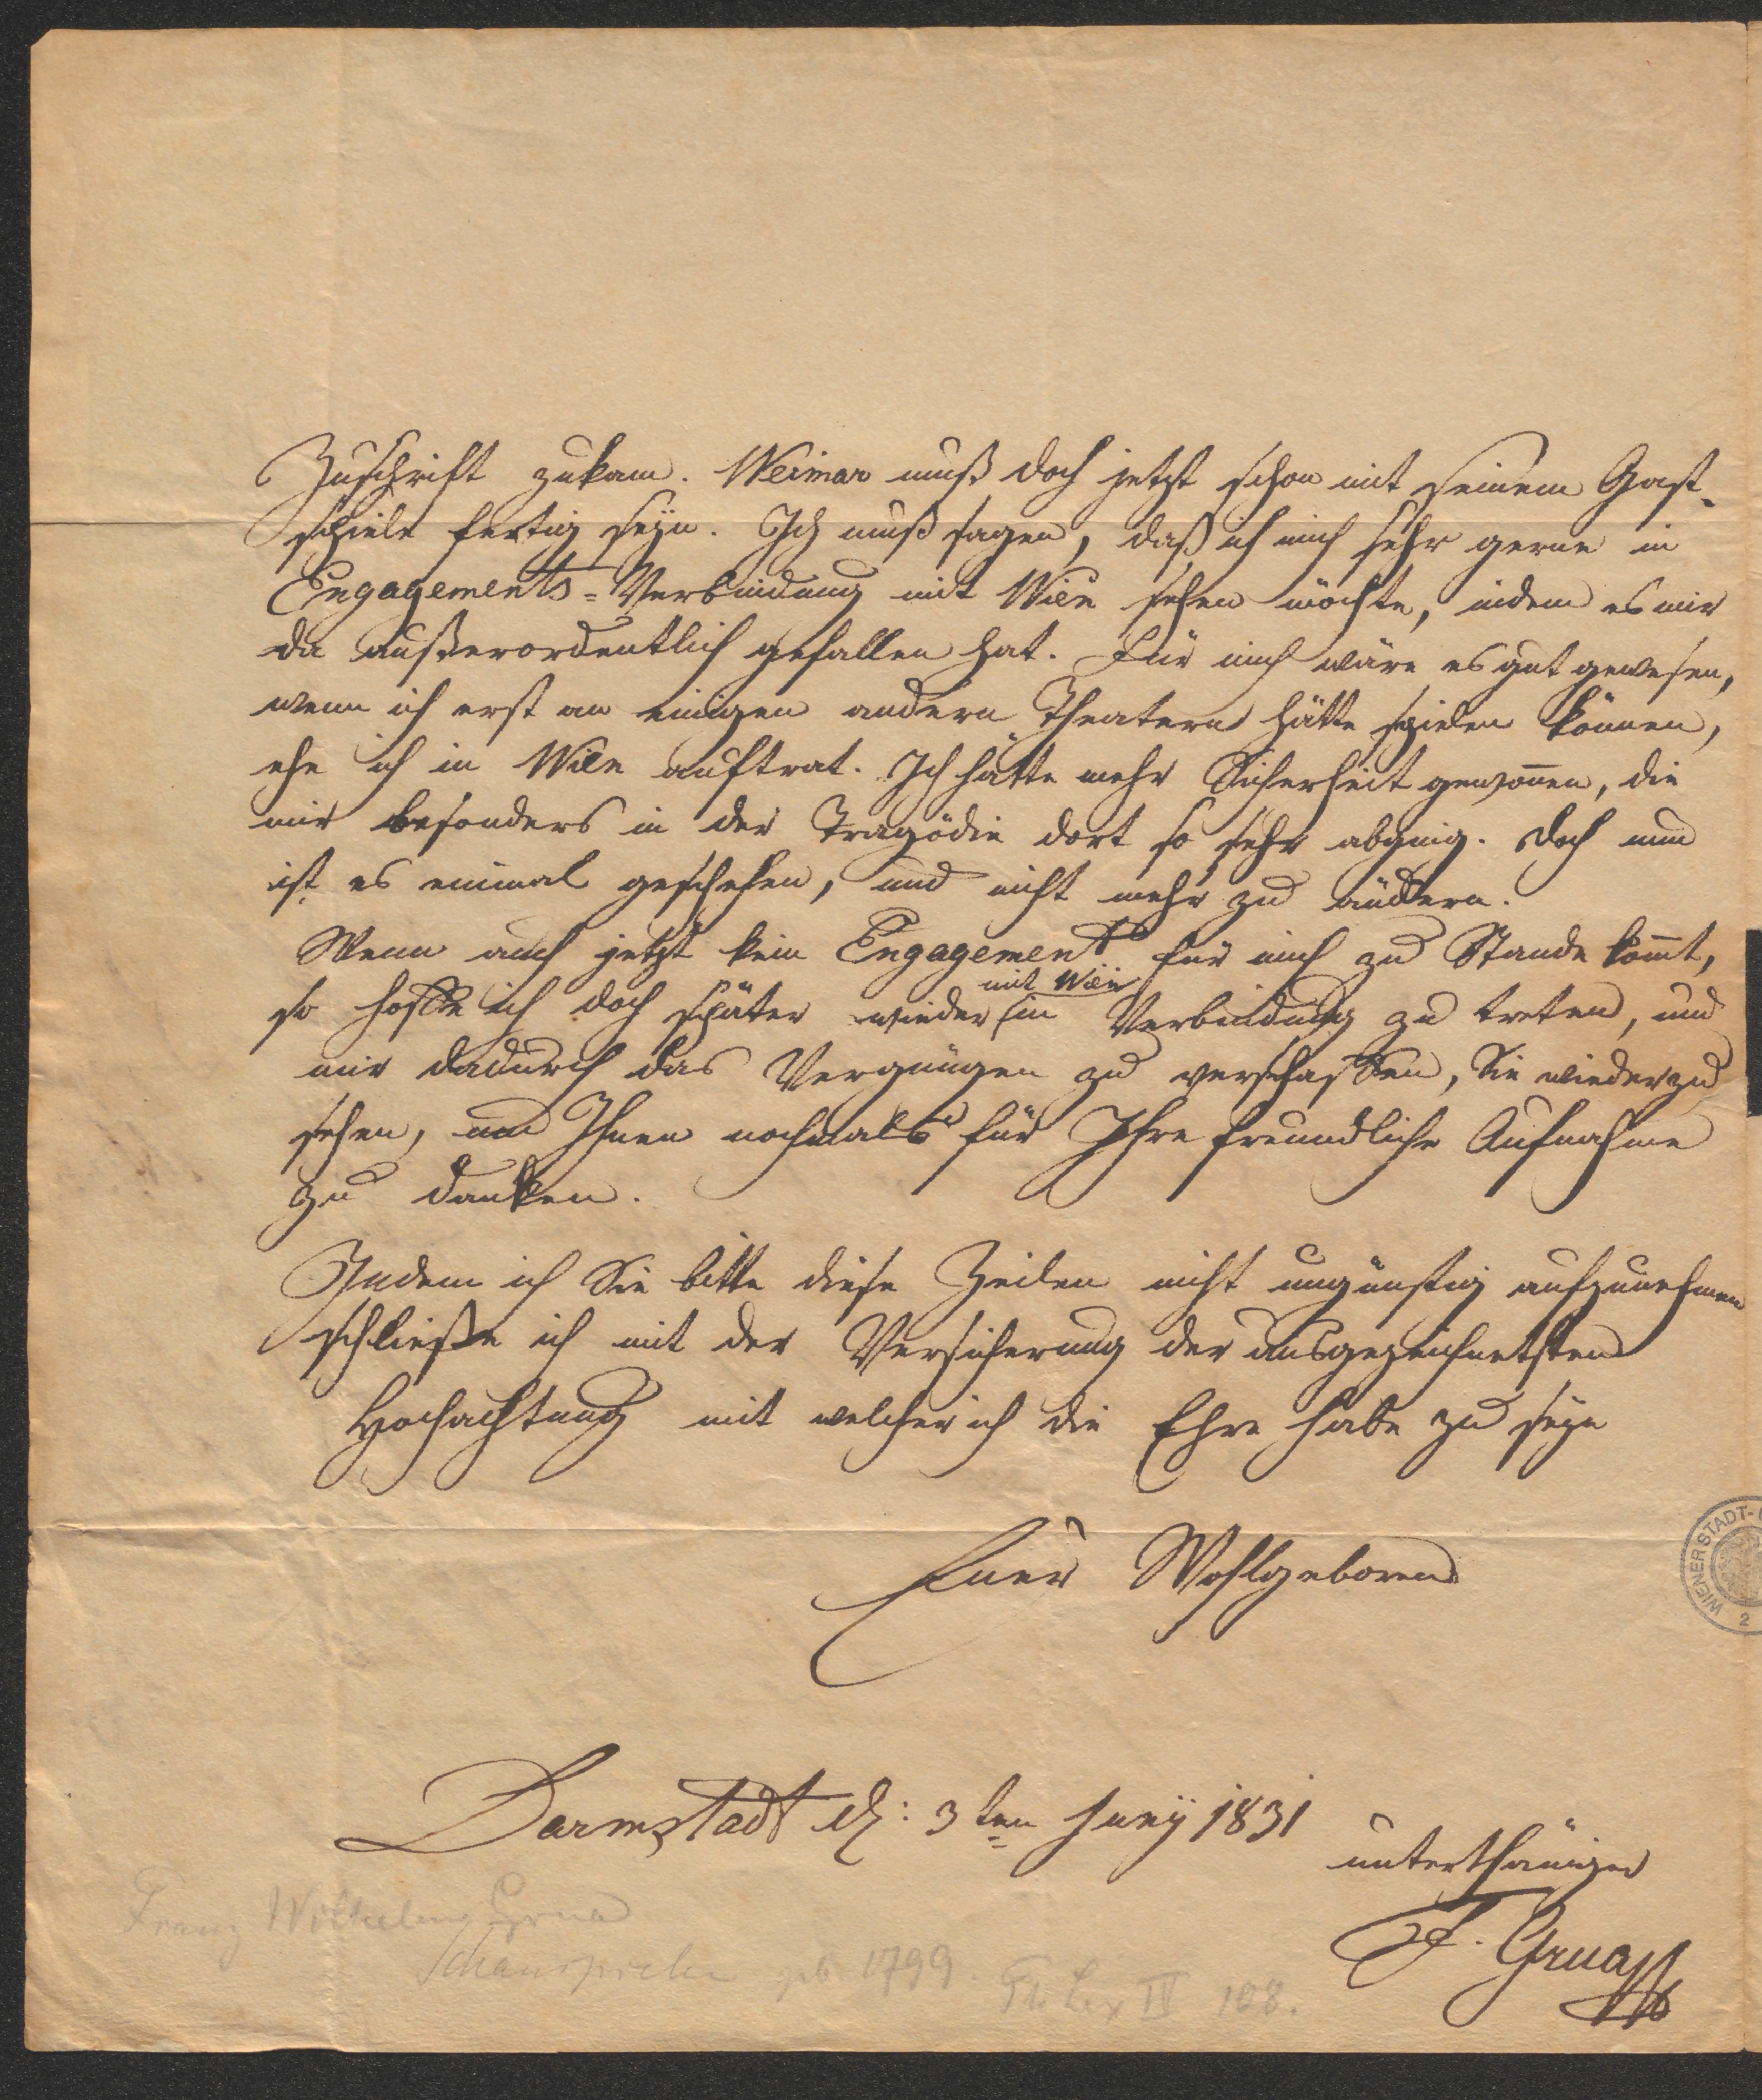 Zuschrift zukam. Weimar muß doch jetzt schon mit seinem Gast-
spiele fertig seyn. Ich muß sagen, daß ich mich sehr gerne in
Engagements-Verbindung mit Wien sehen möchte, indem es mir
da außerordentlich gefallen hat. Für mich wäre es gut gewesen,
wenn ich erst an einigen andern Theatern hätte spielen können,
ehe ich in Wien auftrat. Ich hätte mehr Sicherheit gewonnen, die
mir besonders in der Tragödie dort so sehr abging. Doch nun
ist es einmal geschehen, und nicht mehr zu ändern.
Wenn auch jetzt kein Engagement für mich zu Stande kom̄t,
mit Wien
so hoffe ich doch später wieder in Verbindung zu treten, und
mir dadurch das Vergnügen zu verschaffen, Sie wiederzu
sehen, und Ihnen nochmals für Ihre freundliche Aufnahme
zu danken.
Indem ich Sie bitte diese Zeilen nicht ungünstig aufzunehmen
schließe ich mit der Versicherung der ausgezeichnetsten
Hochachtung mit welcher ich die Ehre habe zu seyn
Euer Wohlgeboren
Darmstadt d: 3ten Juny 1831
unterthäniger
F. Grua
Franz Wilhelm Grua
Schauspieler geb 1799 Th. Lex IV 108.
WIENER STADT-
2